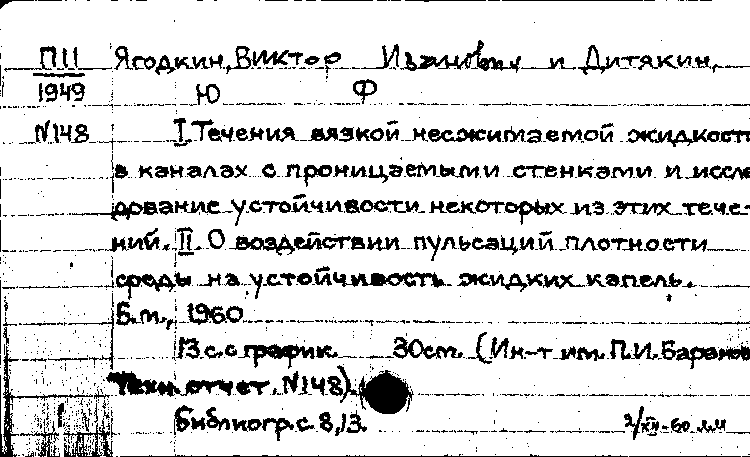 П11 Ягодкин, Виктор Иванович и Дитякин,
1949 Ю Ф
N148 I. Течения вязкой несжимаемой жидкост
в каналах с проницаемыми стенками и иссле
дование устойчивости некоторых из этих тече-
ний. II. О воздействии пульсаций плотности
среды на устойчивость жидких капель.
Б.м., 1960
13 с. с график. 30см. (Ин-т им. П.И. Баранов
Техн. отчет. N148).
1 Библиогр. с. 8,13. 2/XII-60 л.м